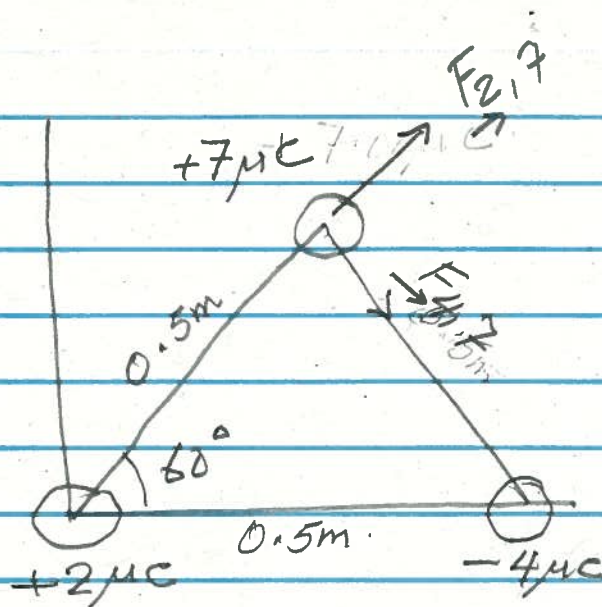 F2,7
+7μC
0.5m
60°
0.5m.
+2μC
-4μC